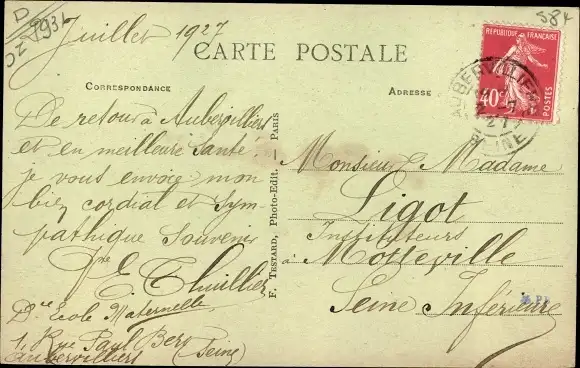 Juillet 1927
CARTE POSTALE
CORRESPONDANCE
ADRESSE
REPUBLIQUE FRANÇAISE
40c
POSTES
AUBERVILLIERS
SEINE
De retour à Aubervilliers
et en meilleure santé
je vous envoie mon
bien cordial et sym-
pathique souvenir
E. Thuillier
Dce Ecole Maternelle
1, Rue Paul Bert
Aubervilliers (Seine)
F. TESTARD, Photo-Edit. — PARIS
Monsieur, Madame
Ligot
Instituteurs
à Motteville
Seine Inférieure